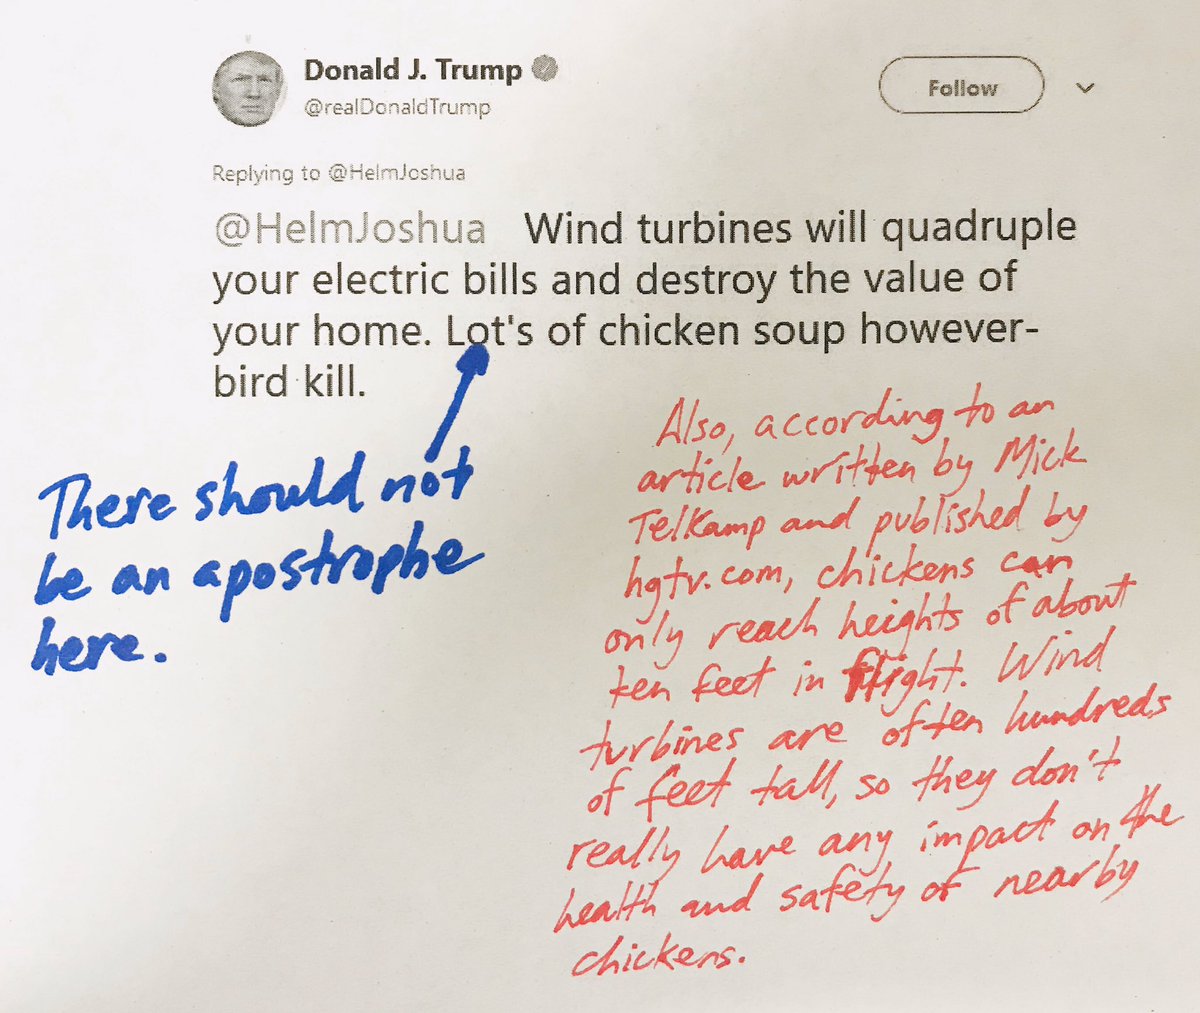 Donald J. Trump
@realDonaldTrump
Follow
Replying to @HelmJoshua
@HelmJoshua Wind turbines will quadruple
your electric bills and destroy the value of
your home. Lot's of chicken soup however-
bird kill.
There should not
be an apostrophe
here.
Also, according to an
article written by Mick
Telkamp and published by
hgtv.com, chickens can
only reach heights of about
ten feet in flight. Wind
turbines are often hundreds
of feet tall, so they don't
really have any impact on the
health and safety of nearby
chickens.